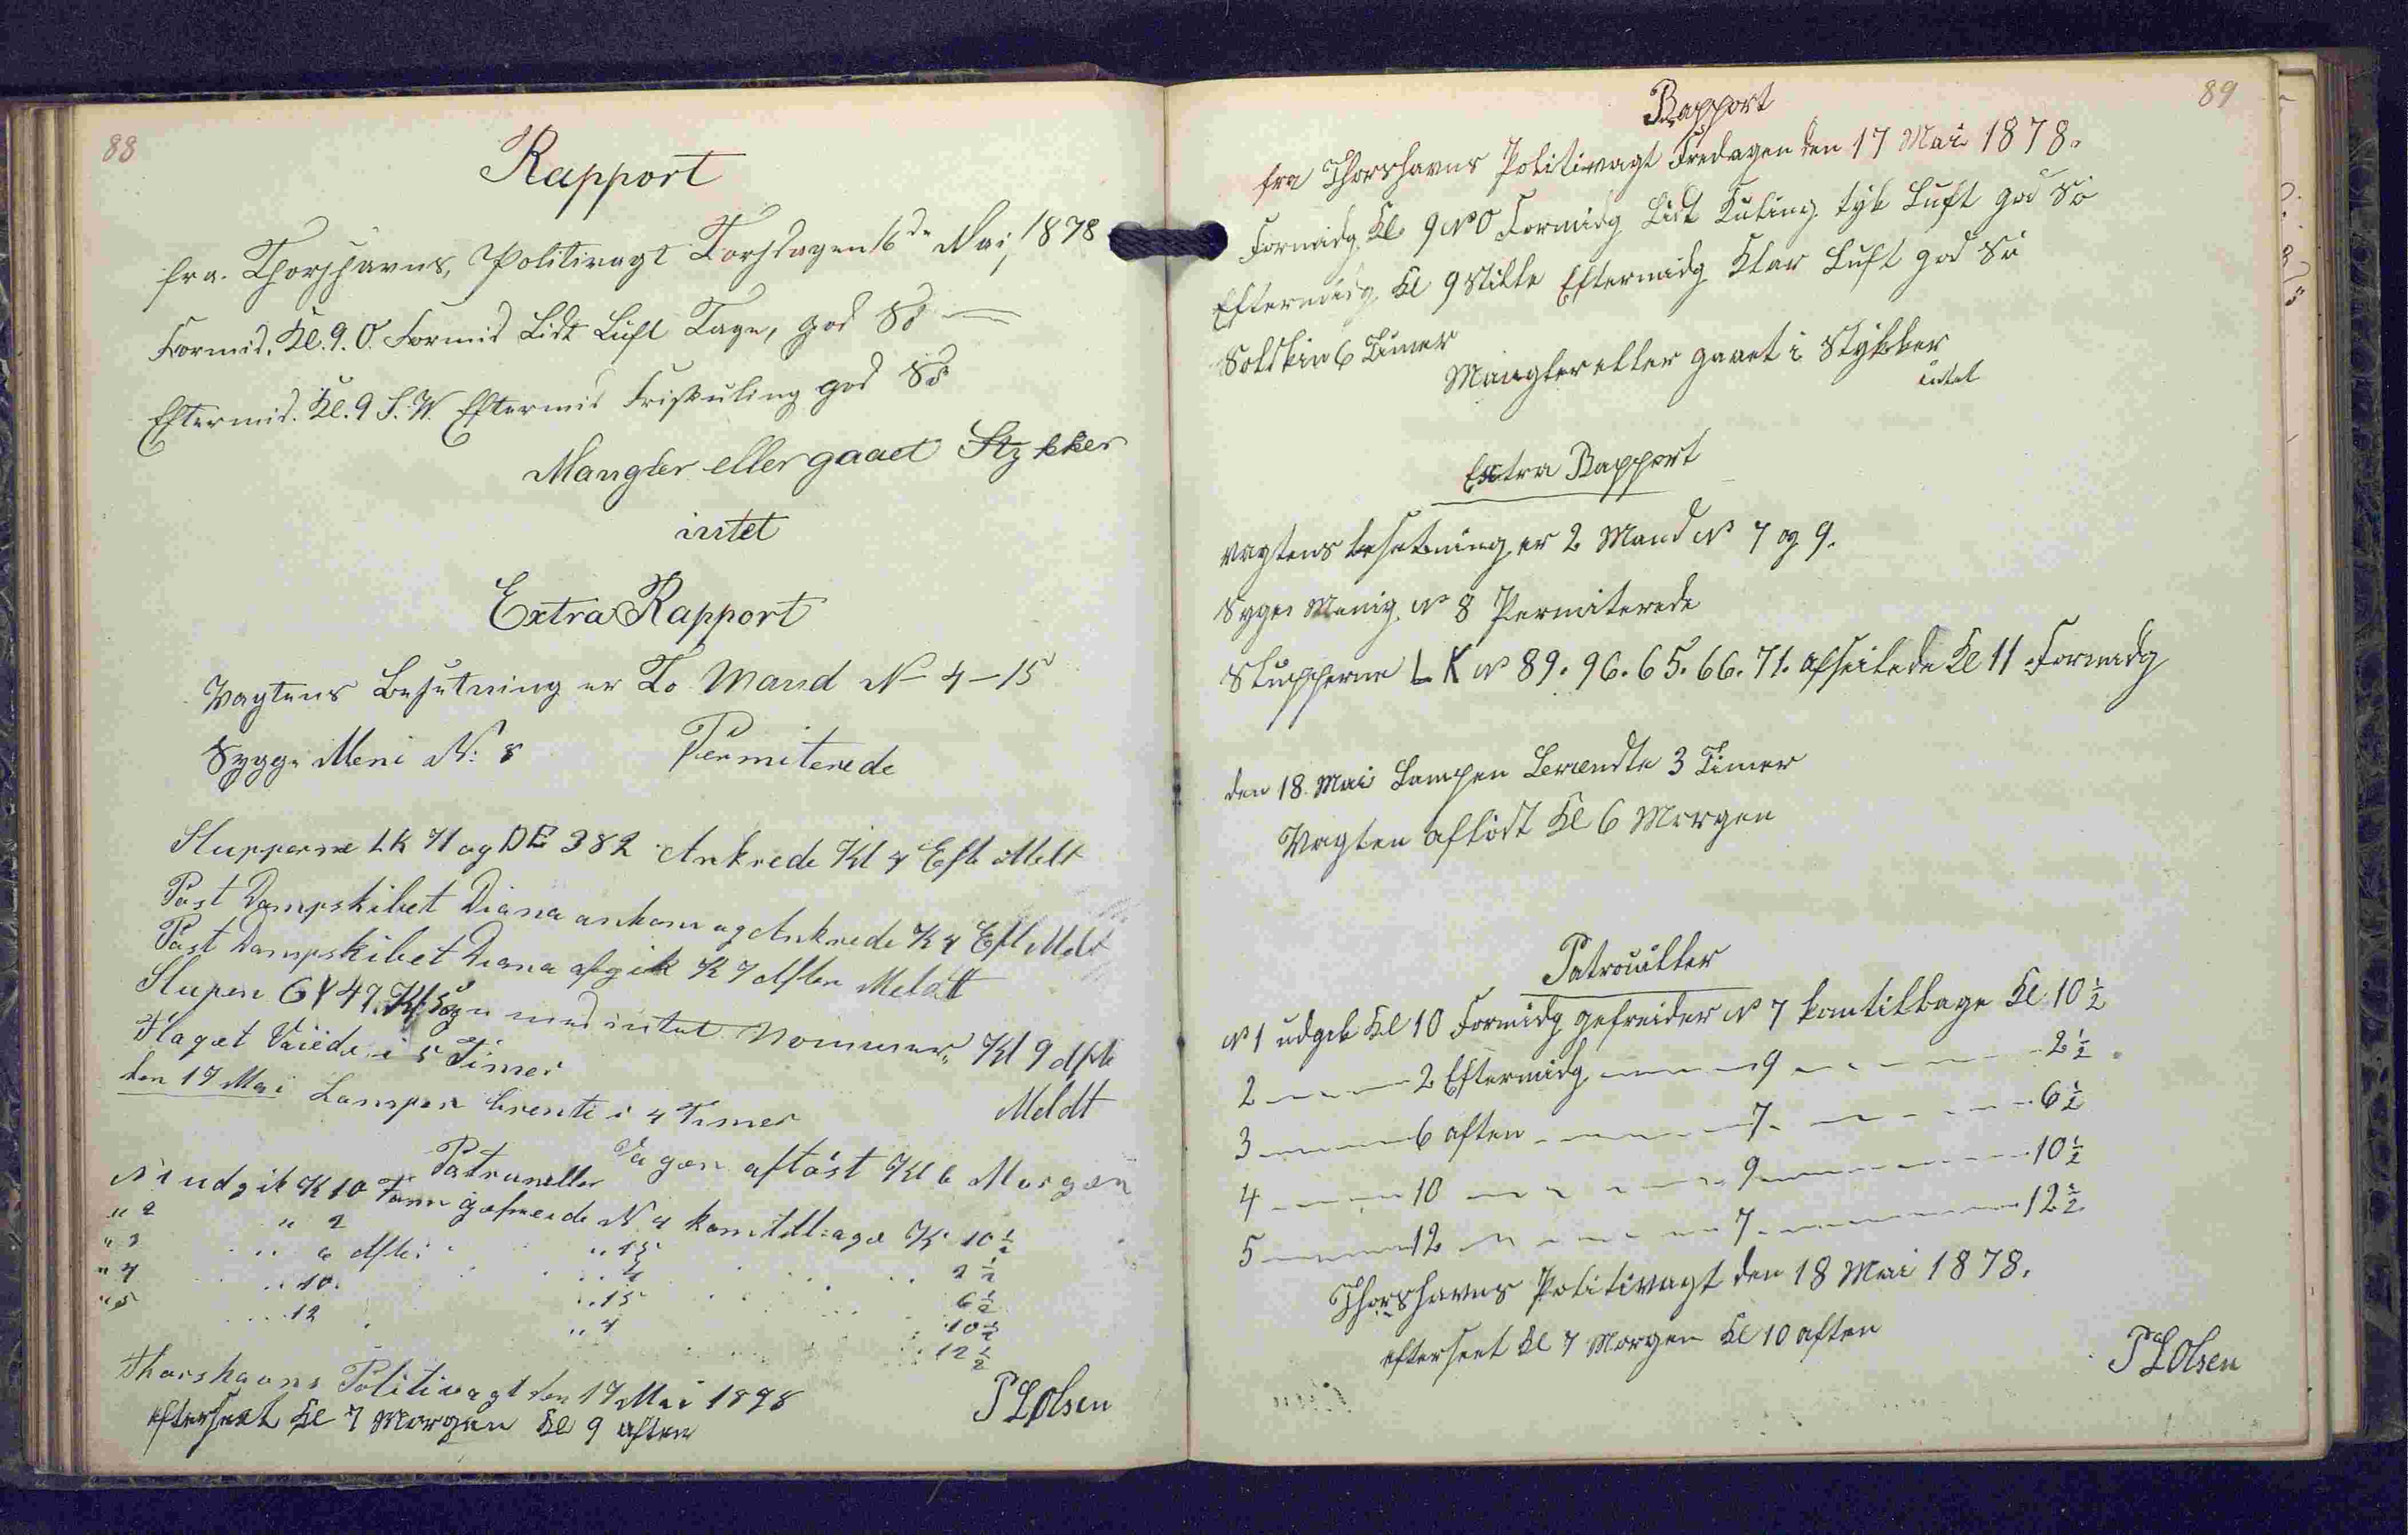 88
Rapport
fra. Thorshavns, Politivagt Torsdagen 16de Mai, 1878
Formid. Kl. 9. O. Formid Lidt Luft Tage, god Sö
Eftermid. Kl. 9 S. W. Eftermid Friskuling god Sö
Mangler eller gaaet Stykker
intet
Extra Rapport
Vagtens Besetning er To Mand N 4-15
Syge Meni N: 8 Permiterede
Slupperne LK 71 og DE 382 Ankrede Kl 4 Eft Meldt
Post Dampskibet Diana ankom og Ankrede K 4 Eft Meldt
Post Dampskibet Diana afgik K 7 Aften Meldt
Slupen GY 47. med intet Nommer, Kl 9 Aft
Meldt
Flaget Vaiede i 5 Timer
den 17 Mai Lampen brente i 4 Timer
Vagen aflöst Kl 6 Morgen
Patruneller
N 1 udgik K 10 Form gefreide N 4 komtilbage K 10 1/2
" 2 " 2 " 15 2 1/2
" 3 " 6 Aften " 4 6 1/2
" 4 " 10. " 15 10 1/2
" 5 " 12 " 4 12 1/2
Thorshavns Politivagt den 17 Mai 1878
efterseet Kl 7 Morgen Kl 9 aften
P L Olsen
89
Rapport
fra Thorshavns Politivagt Fredagen den 17 Mai 1878.
Formidg. Kl. 9 NO Formidg Lidt Kuling tyk Luft god Sö
Eftermidg Kl 9 Stille Eftermidg Klar Luft god Sö
Solskin 6 Timer
Mangler eller gaaet i Stykker
intet
Extra Rapport
Vagtens besetning er 2 Mand No 7 og 9.
Syge Menig. No 8 Permiterede
Slupperne LK No 89. 96. 65. 66. 71. afseilede Kl 11 Formidg
den 18. Mai Lampen Brændte 3 Timer
Vagten aflöst Kl 6 Morgen
Patrouiller
No 1 udgik Kl 10 Formidg gefreider No 7 komtilbage Kl 10 1/2
2 2 Eftermidg 9 2 1/2
3 6 aften 7 6 1/2
4 10 9 10 1/2
5 12 7 12 1/2
Thorshavns Politivagt den 18 Mai 1878.
efterseet Kl 7 Morgen Kl 10 aften
P L Olsen